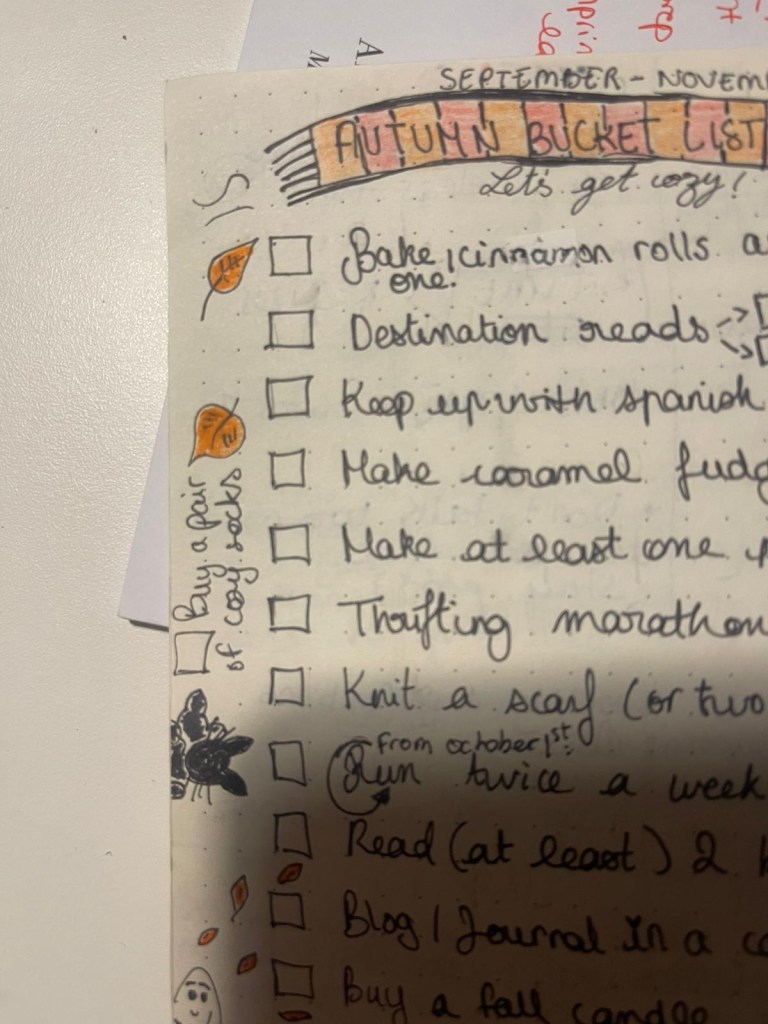 SEPTEMBER - NOVEM
AUTUMN BUCKET LIST
Let's get cozy!
Bake cinnamon rolls a
one.
Destination reads
Keep up with spanish
Make caramel fudg
Make at least one
Thrifting marathon
Knit a scarf (or two
from october 1st:
Run twice a week
Read (at least) 2
Blog / Journal in a co
Buy a fall candle
Buy a pair
of cosy socks